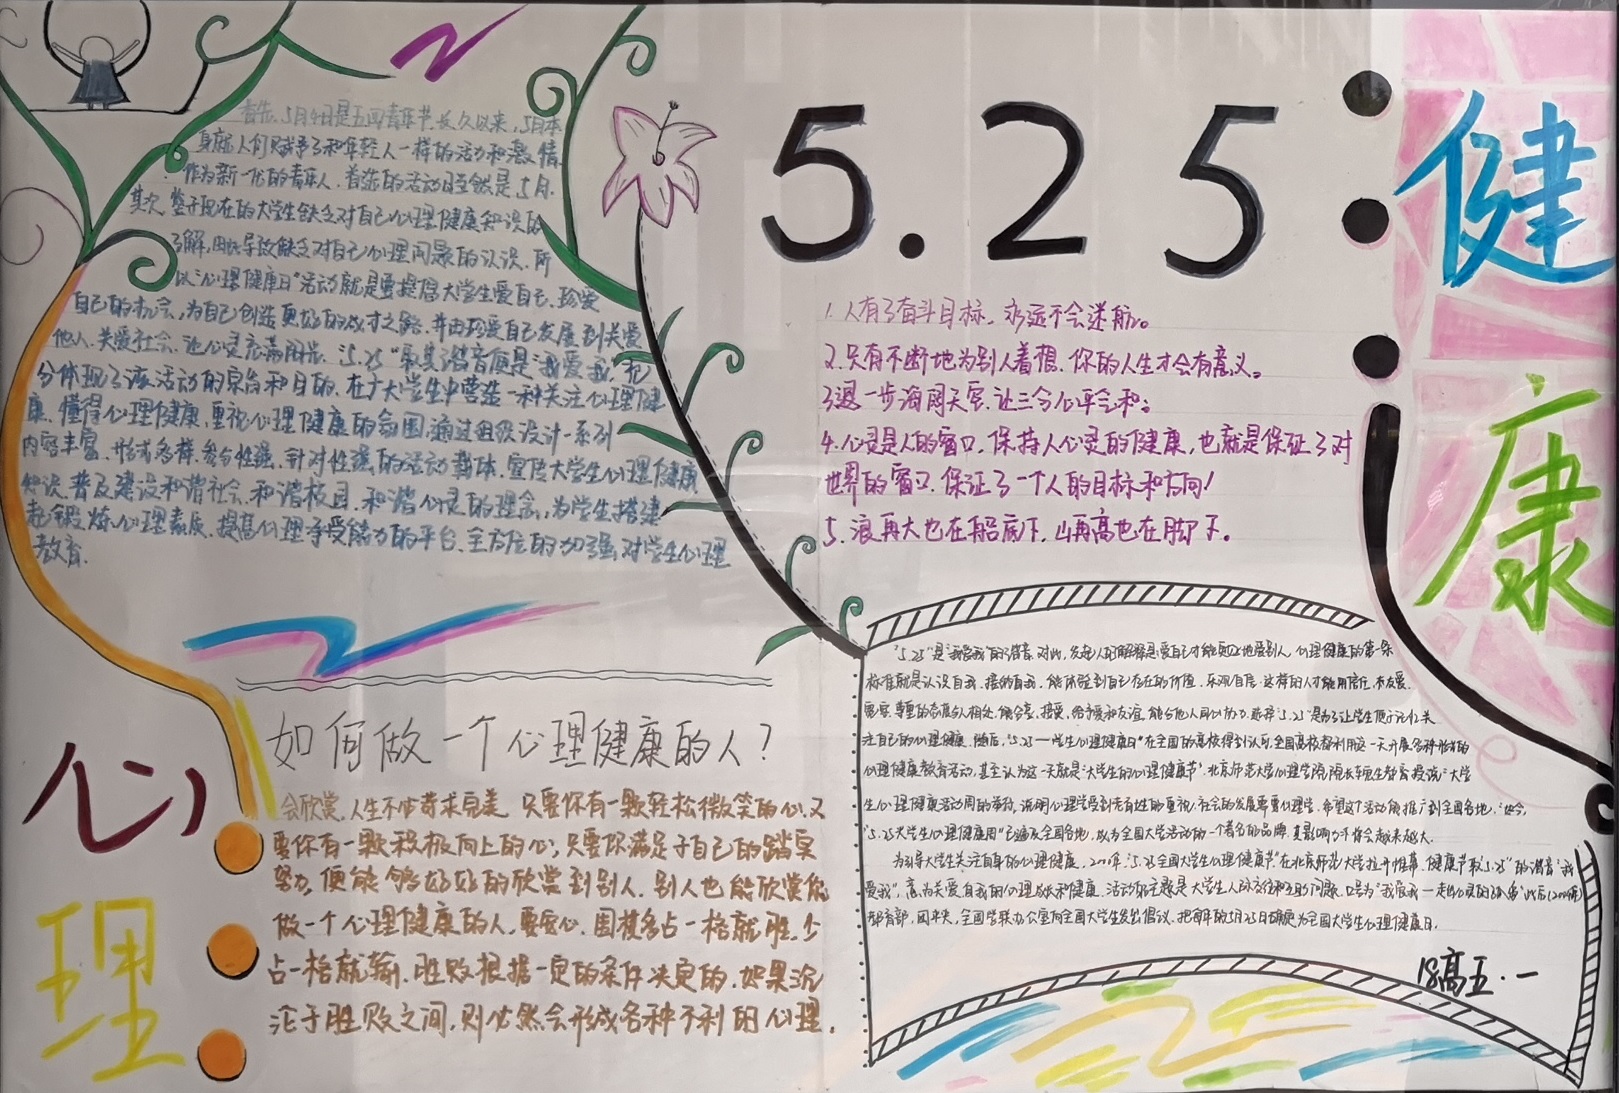 5.25
健康
心理
首先,5月4日是五四青年节,长久以来,5月本
身就被人们赋予了和年轻人一样的活力和激情
作为新一代的青年人,首选的活动日当然是5月.
其次,鉴于现在的大学生缺乏对自己心理健康知识的
了解,由此导致缺乏对自己心理问题的认识,所
以"心理健康日"活动就是要提倡大学生爱自己,珍爱
自己的机会,为自己创造更好的成才之路,并由珍爱自己发展到关爱
他人,关爱社会,让心灵充满阳光."5.25"取其谐音便是"我爱我",充
分体现了该活动的宗旨和目的,在广大学生中营造一种关注心理健
康、懂得心理健康,重视心理健康的氛围,通过组织设计一系列
内容丰富、形式多样、参与性强、针对性强的活动载体,宣传大学生心理健康
知识,普及建设和谐社会、和谐校园、和谐心灵的理念,为学生搭建
起锻炼心理素质、提高心理承受能力的平台,全方位的加强对学生心理
教育.
1.人有了奋斗目标,永远不会迷航。
2.只有不断地为别人着想,你的人生才会有意义。
3.退一步海阔天空,让三分心平气和。
4.心灵是人的窗口,保持人心灵的健康,也就是保证了对
世界的窗口,保证了一个人的目标和方向!
5.浪再大也在船底下,山再高也在脚下。
如何做一个心理健康的人?
会欣赏,人生不必苛求完美,只要你有一颗轻松微笑的心,又
要你有一颗积极向上的心;只要你满足于自己的踏实
努力,便能够好好的欣赏到别人,别人也能欣赏你
做一个心理健康的人,要安心,围棋多占一格就胜,少
占一格就输,胜败根据一定的条件决定的,如果沉
沦于胜败之间,则必然会形成各种不利的心理.
"5.25"是"我爱我"的谐音,对此,发起人的解释是:爱自己才能更好地爱别人,心理健康的第一条
标准就是认识自我,接纳自我,能体验到自己存在的价值,乐观自信,这样的人才能用信任、友爱、
宽容、尊重的态度与人相处,能分享、接受、给予爱和友谊,能与他人同心协力.选择"5.25"是为了让学生便于记忆,关
注自己的心理健康.随后,"5.25—学生心理健康日"在全国的高校得到认可,全国高校都利用这一天开展各种形式的
心理健康教育活动,甚至认为这一天就是"大学生的心理健康节".北京师范大学心理学院院长 曾经说:"大学
生心理健康活动周的举行,说明心理学受到先有性的重视,社会的发展需要心理学,希望这个活动能推广到全国各地."如今,
"5.25大学生心理健康周"已遍及全国各地,成为全国大学活动的一个著名的品牌,其影响力将会越来越大.
为引导大学生关注自身的心理健康,2000年"5.25全国大学生心理健康节"在北京师范大学拉开帷幕,健康节取"5.25"的谐音"我
爱我",意为关爱自我的心理成长和健康.活动的主题是大学生人际交往和互助问题,口号为"我爱我—走出心灵的孤岛".此后(2004年)
教育部、团中央、全国学联办公室向全国大学生发出倡议,把每年的5月25日确定为全国大学生心理健康日.
18高五·一